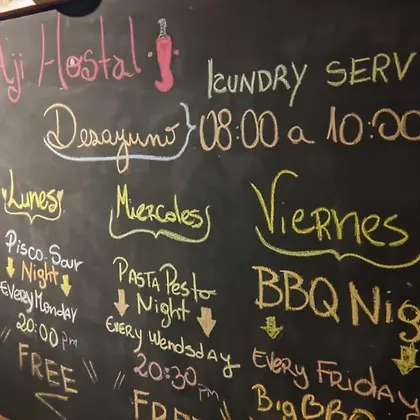 Aji Hostal
LAUNDRY SERV
Desayuno 08:00 a 10:00
Lunes
Pisco Sour
Night
EVERY Monday
20:00 pm
"FREE"
Miercoles
PASTA Pesto
Night
EVERY Wendsday
20:30 pm
"FREE
Viernes
BBQ Nig
EVERY FRIDAY
Big BBQ